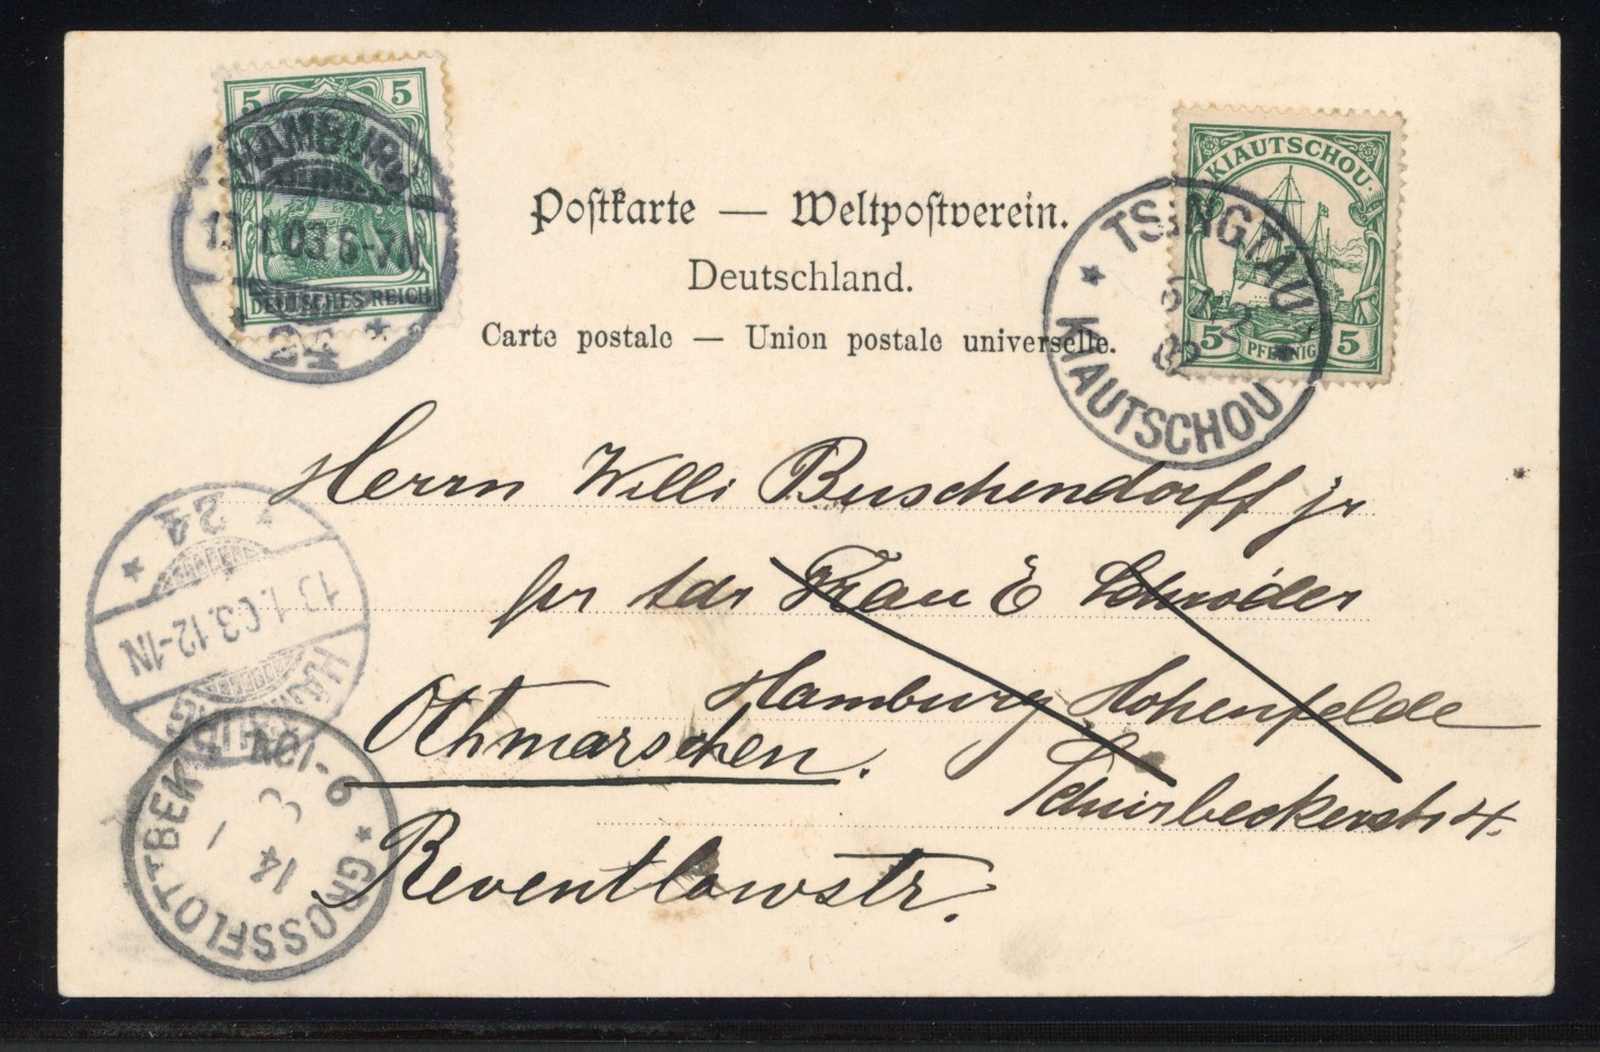 5 5
HAMBURG
13.1.03 6-7N
DEUTSCHES REICH
KIAUTSCHOU
5 PFENNIG 5
TSINGTAU
KIAUTSCHOU
Postkarte — Weltpostverein.
Deutschland.
Carte postale — Union postale universelle.
Herrn Willi Buschendorff jr
per Adr Frau E Schröder
Hamburg Hohenfelde
Othmarschen.
Reventlowstr.
24
13.1.03.12-1N
HAMBURG
GROSSFLOTTBEK
14
1
9-10V